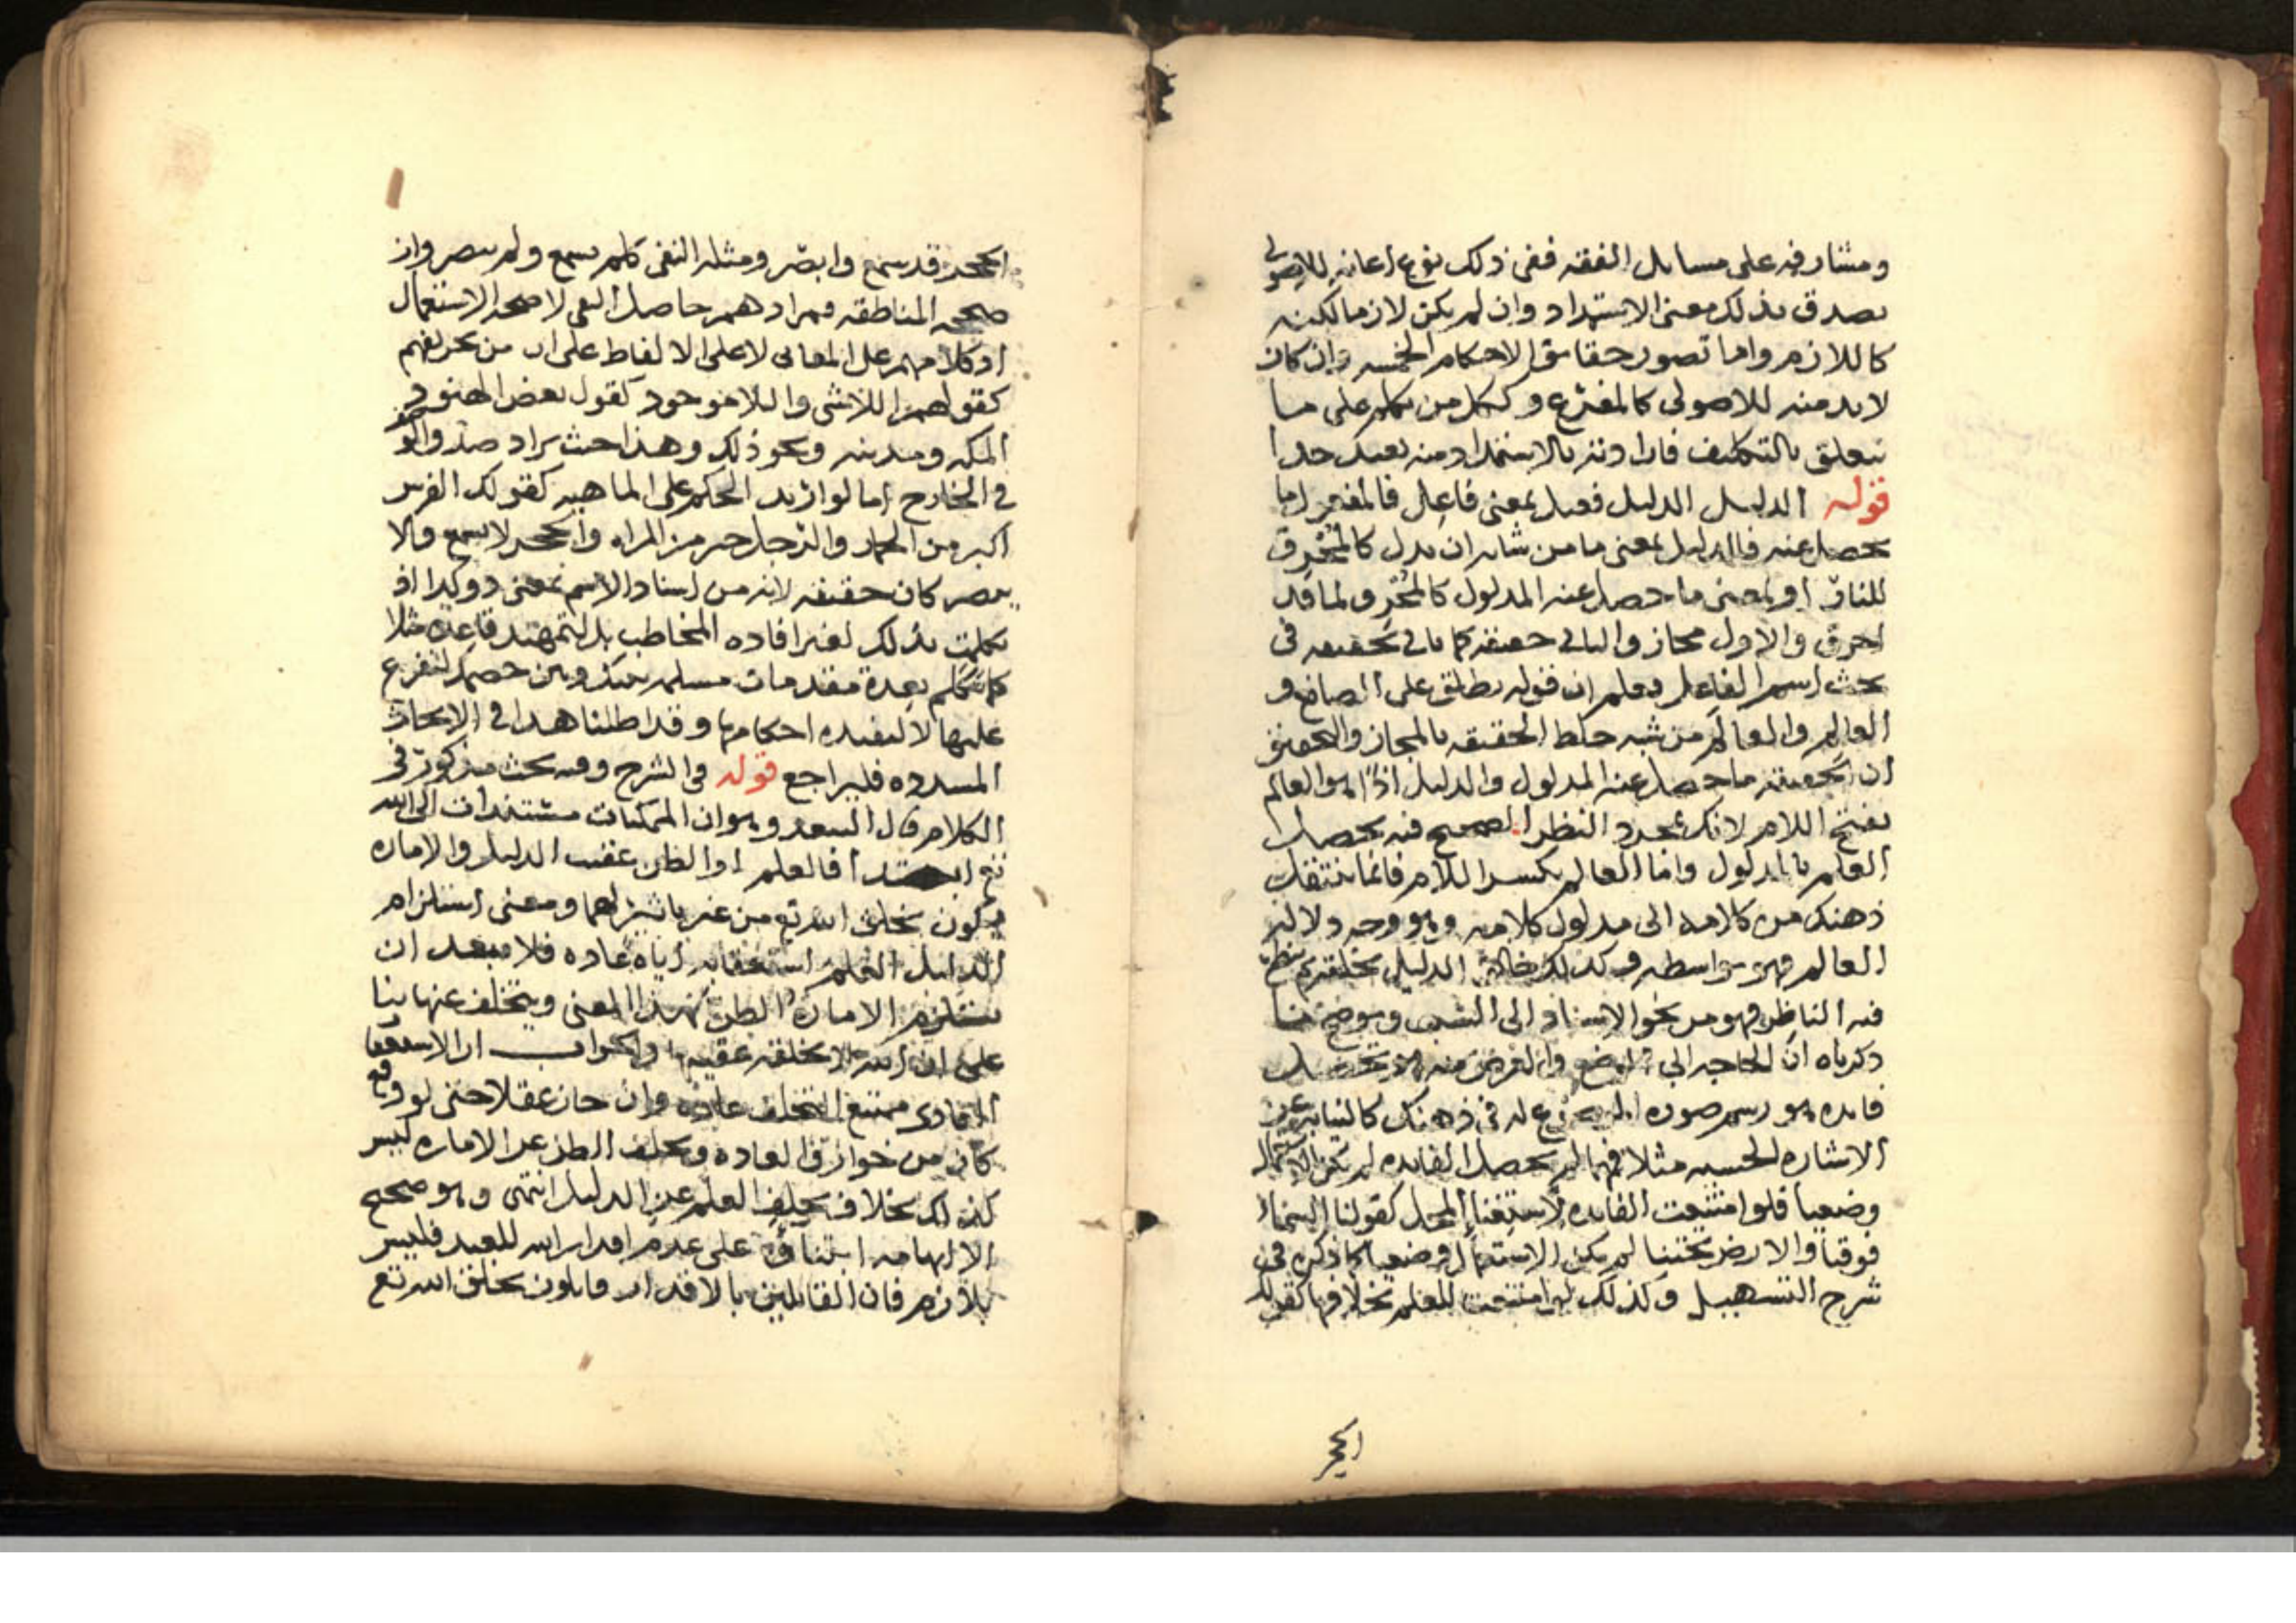 ومشارفه على مسايل الفقه ففى ذلك نوع اعانه للاصولى
يصدق بذلك معنى الاستمداد وان لم يكن لازما لكنه
كاللازم واما تصور حقايق الاحكام الخمسه وان كان
لابد منه للاصولى كالمفرع وككل من يتكلم على ما
يتعلق بالتكليف فارادته بالاستمداد منه بعيد جدا
قوله الدليل الدليل فعيل بمعنى فاعل فالمفهوم اما
يحصل عنه فالدليل بمعنى ما من شانه ان يدل كالمحرق
للنار او بمعنى ما حصل عنه المدلول كالمحرق لما قد
احرق والاول مجاز والثانى حقيقه كما ياتى تحقيقه فى
بحث اسم الفاعل وتعلم ان قوله يطلق على الصانع و
العالم والعالم من شبه خلط الحقيقه بالمجاز والتحقيق
ان الحقيقه ما حصل عنه المدلول والدليل اذا هو العالم
بفتح اللام لانك بمجرد النظر الصحيح فيه يحصل
العلم بالمدلول واما العالم بكسر اللام فانما ينتقل
ذهنك من كلامه الى مدلول كلامه وهو وجه دلاله
العالم فهو بواسطه وكذلك خالق الدليل بخلقه ثم ينظر
فيه الناظر فهو من نحو الاسناد الى السبب ويوضح ما
ذكرناه ان الحاجه الى الوضع والغرض منه لا تحصيل
فايده هو رسم صوره الموضوع له فى ذهنك كالنيابه عن
الاشاره الحسيه مثلا فمهما لم يحصل الفايده لم يكن الاستعمال
وضعيا فلو امتنعت الفايده لاستغنا المحل كقولنا السماء
فوقنا والارض تحتنا لم يكن الاستعمال وضعيا كما ذكره فى
شرح التسهيل وكذلك لو امتنعت للعلم بخلافها كقولك
الحجر
الحجر قد سمع وابصر ومثله النفى كلم يسمع ولم يبصر وان
صححه المناطقه فمرادهم حاصل النفى لا صحه الاستعمال
اذ كلامهم على المعانى لا على الالفاظ على ان من تحريفهم
كقولهم اللاشى واللاموجود كقول بعض الهنود
المكه ومدينه ونحو ذلك وهذا حيث يراد
فى الخارج اما لو اريد الحكم على الماهيه كقولك الفرس
اكبر من الحمار والرجل خير من المراه والحجر لا يسمع ولا
يبصر كان حقيقه لانه من اسناد الاسم بمعنى وكذا اذ
تكلمت بذلك لغير افاده المخاطب بل لتمهيد قاعده مثلا
كما تتكلم بعدة مقدمات مسلمه بينك وبين خصمك لتفرع
عليها لا لتفيده احكامها وقد اطلنا هذا فى الابحاث
المسدده فليراجع قوله فى الشرح وفيه بحث مذكور فى
الكلام قال السعد وهو ان الممكنات مستندات الى الله
تع ابتدا فالعلم او الظن عقيب الدليل والاماره
يكون بخلق الله تع من غير تاثير لهما ومعنى استلزام
الدليل العلم استعقابه اياه عاده فلا يبعد ان
يستلزم الاماره الظن بهذا المعنى ويتخلف عنها بنا
على ان الله لا يخلقه عقيبها والجواب ان الاستعقاب
العادى ممتنع التخلف عاده وان جاز عقلا حتى لو وقع
كان من خوارق العاده وتخلف الظن عن الاماره ليس
كذلك بخلاف تخلف العلم عن الدليل انتهى وهو صحيح
الا ابتناوه على عدم اقدار الله للعبد فليس
بلازم فان القايلين بالاقدار قايلون بخلق الله تع